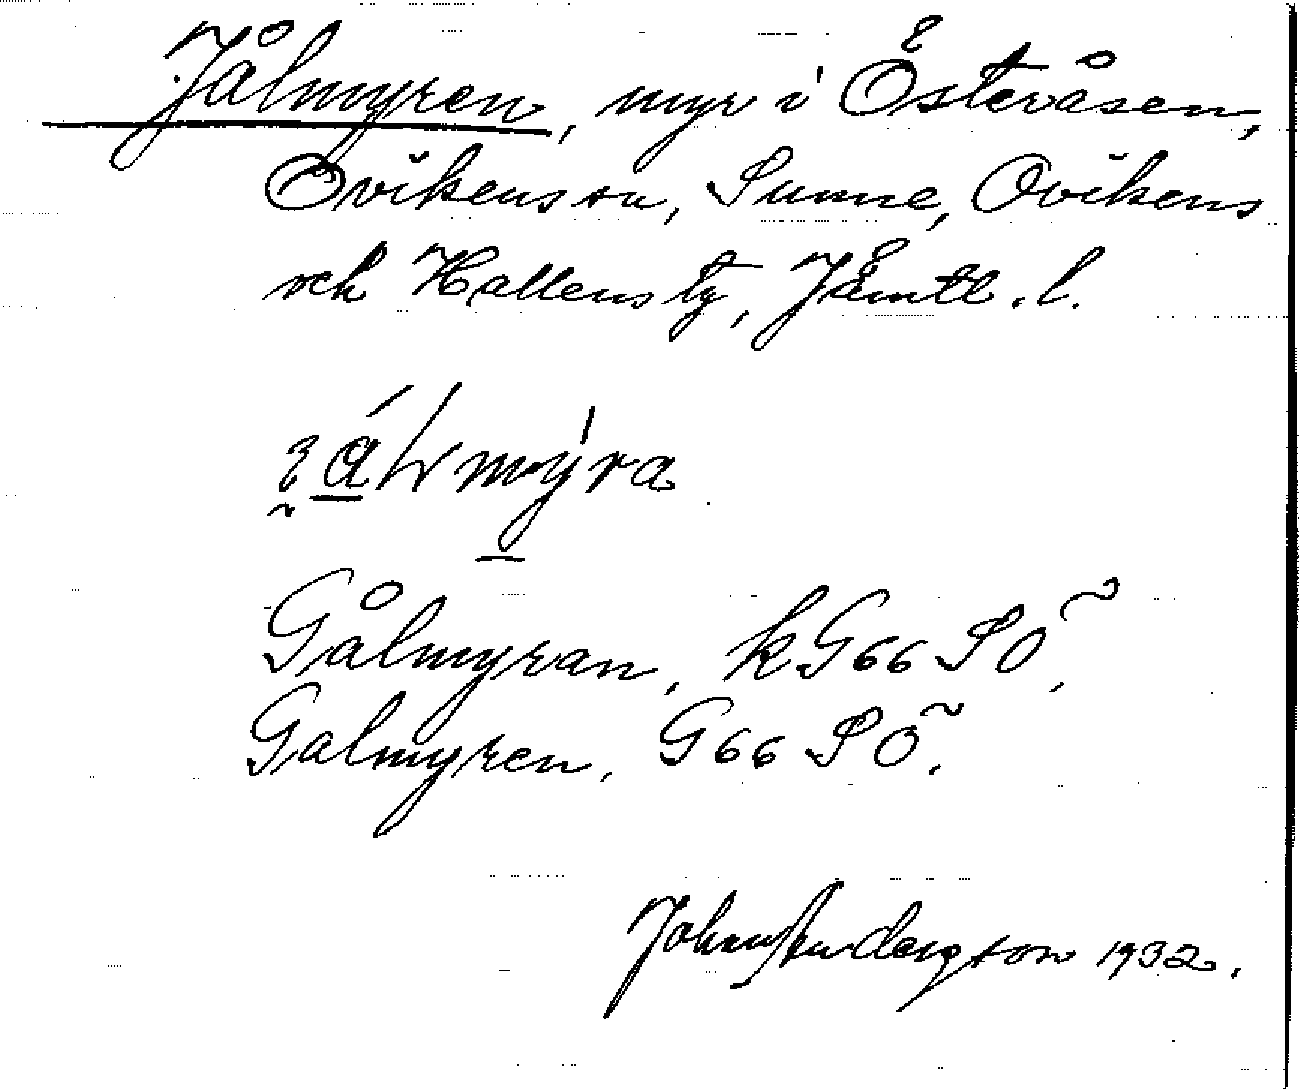 Jålmyren, myr i Österåsen,
Ovikens sn, Sunne, Ovikens
och Hallens tg, Jämtl. l.
Gålmyran, kG66 SÖ,
Galmyren, G66 SÖ.
John Andersson 1932.